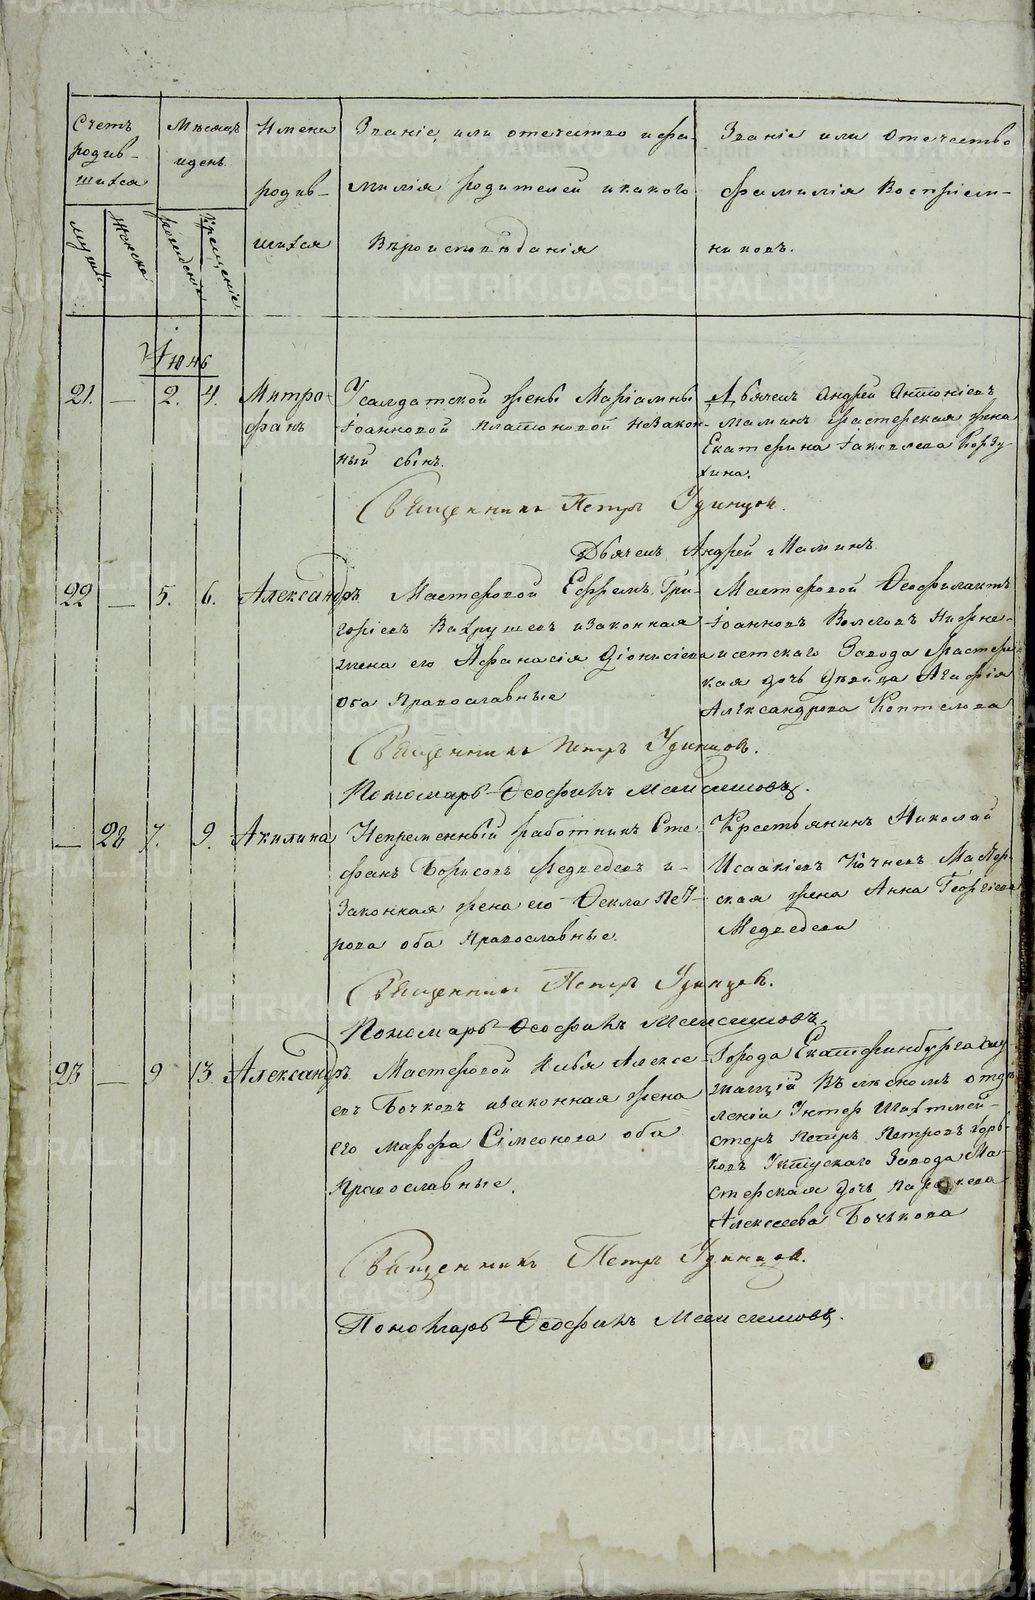 METRIKI.GASO-URAL.RU
Счетъ
родив-
шихся
Мѣсяцъ
и день
Имена
родив-
шихся
Званіе, или отечество и фа-
милія родителей и какого
Вѣроисповѣданія
Званіе или Отечество
фамилія Воспріем-
никовъ.
мужи
женска
рожденія
Крещенія
Июнь
21. — 2. 4.
Митро-
фанъ
У салдатской жены Маріамны
Іоанновой Платоновой незакон-
ный сынъ.
Дьячекъ Андрей Антоніевъ
Маминъ Мастерская жена
Екатерина Іаковлева Корзу-
хина.
Священникъ Петръ Удинцов.
Дьячекъ Андрей Маминъ
22 — 5. 6.
Александръ.
Мастеровой Ефремъ Гри-
горіевъ Вахрушевъ и законная
жена его Афанасія Діонисіева
оба Православные
Мастеровой Ѳеофилактъ
Іоанновъ Волеговъ Нижне-
исетскаго Завода Мастер
ская дочь Девица Агафія
Александрова Коптелова
Священникъ Петръ Удинцов.
Пономарь Ѳеофанъ
— 22 7. 9.
Акилина
Непременный работникъ Сте-
фанъ Борисовъ Медведевъ и
Законная жена его Ѳекла Пет-
рова оба Православные.
Крестьянинъ Николай
Исаакіевъ Кочневъ Мастер-
ская жена Анна Георгіева
Медведева
Священникъ Петръ Удинцов.
Пономарь Ѳеофанъ
23 — 9 13
Александръ.
Мастеровой Илья Алексе-
евъ Бочковъ и законная жена
его Марфа Сімеонова оба
Православные.
Города Екатеринбурга Слу
жащій Въ лѣсномъ отде
леніи Унтер Шихтмей-
стеръ Петръ Петровъ
Уктускаго Завода Ма-
стерская дочь Параскева
Алексеева Бочькова
Священникъ Петръ Удинцов.
Пономарь Ѳеофанъ